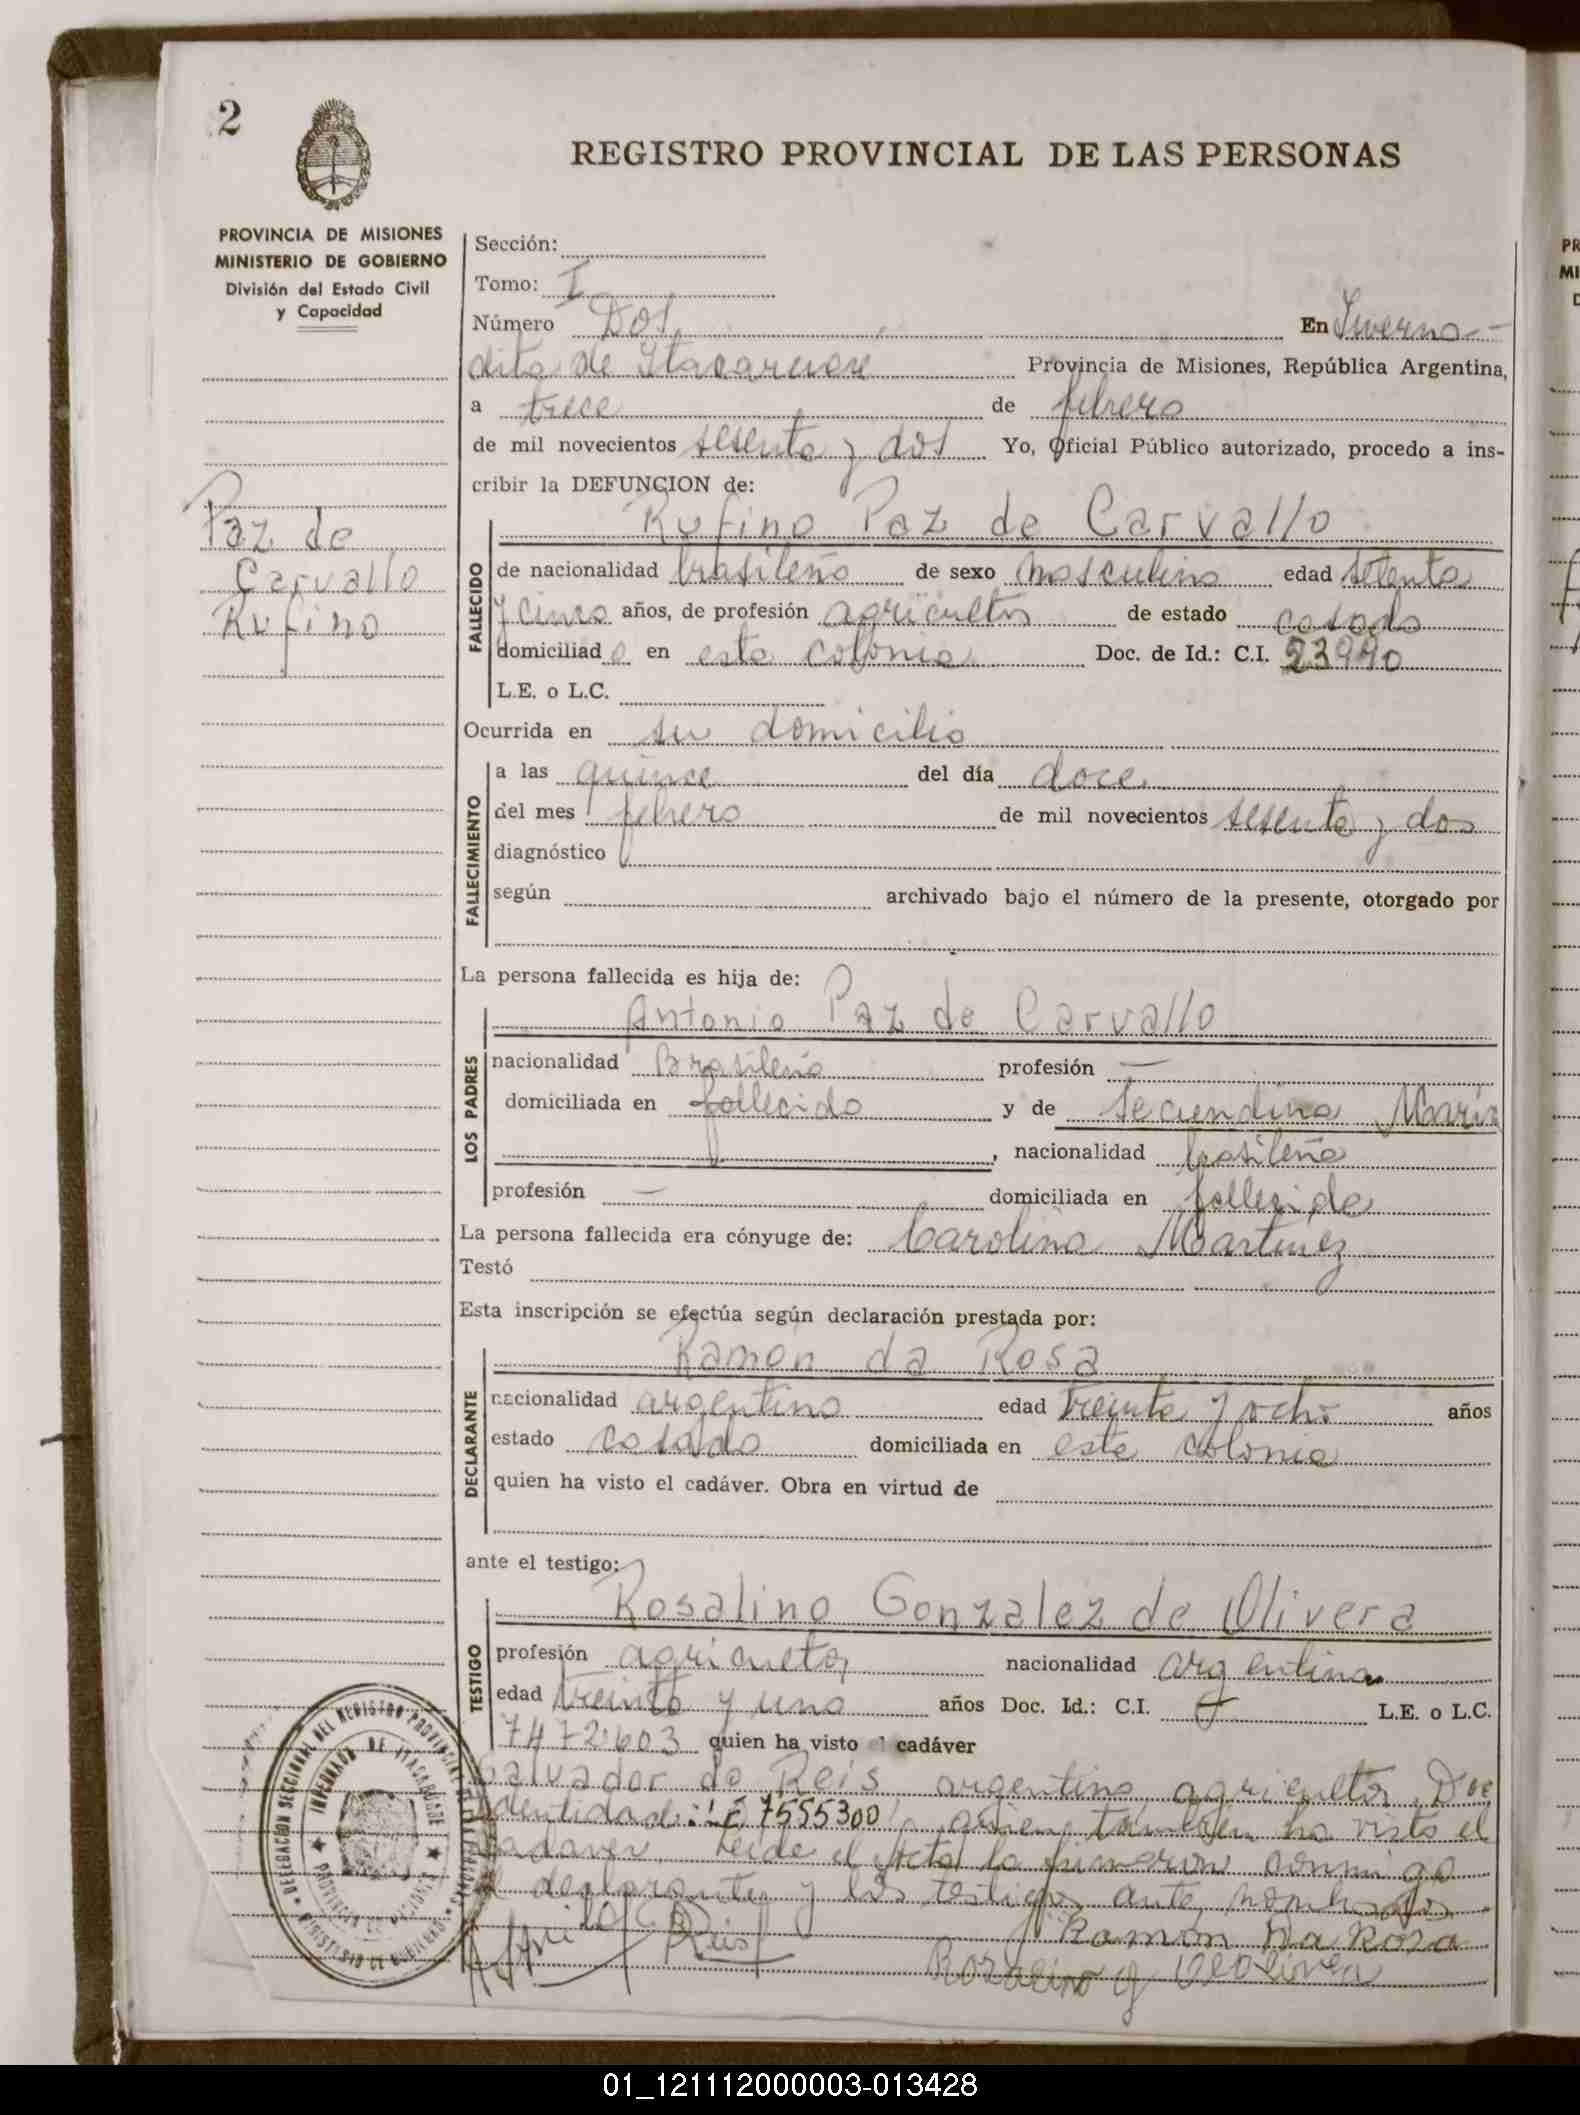 2
REGISTRO PROVINCIAL DE LAS PERSONAS
PROVINCIA DE MISIONES
MINISTERIO DE GOBIERNO
División del Estado Civil
y Capacidad
Paz de
Carvallo
Rufino
Sección:
Tomo: I
Número Dos En Inverna-
dita de Itacaruare Provincia de Misiones, República Argentina,
a trece de febrero
de mil novecientos sesenta y dos Yo, Oficial Público autorizado, procedo a ins-
cribir la DEFUNCION de:
Rufino Paz de Carvallo
FALLECIDO
de nacionalidad brasileño de sexo masculino edad setenta
y cinco años, de profesión agricultor de estado casado
domiciliado en esta colonia Doc. de Id.: C.I. 23990
L.E. o L.C.
Ocurrida en su domicilio
FALLECIMIENTO
a las quince del día doce
del mes febrero de mil novecientos sesenta y dos
diagnóstico
según archivado bajo el número de la presente, otorgado por
La persona fallecida es hija de:
Antonio Paz de Carvallo
LOS PADRES
nacionalidad Brasileño profesión —
domiciliada en fallecido y de Secundina María
, nacionalidad brasileña
profesión — domiciliada en fallecida
La persona fallecida era cónyuge de: Carolina Martinez
Testó
Esta inscripción se efectúa según declaración prestada por:
Ramon da Rosa
DECLARANTE
nacionalidad argentino edad treinta y ocho años
estado casado domiciliada en esta colonia
quien ha visto el cadáver. Obra en virtud de
ante el testigo:
Rosalino Gonzalez de Olivera
TESTIGO
profesión agricultor nacionalidad argentina
edad treinta y uno años Doc. Id.: C.I. L.E. o L.C.
7472603 quien ha visto el cadáver
Salvador do Reis argentino agricultor. Doc
identidad: 7555300 quien también ha visto el
cadaver. Leida el Acta la firmaron conmigo
el declarante y los testigos ante nombrados
Reis Ramón Da Rosa
DELEGACION SECCIONAL DEL REGISTRO PROVINCIAL DE LAS PERSONAS
MINISTERIO DE GOBIERNO
DE ITACARUARE
PROVINCIA DE MISIONES
01_121112000003-013428